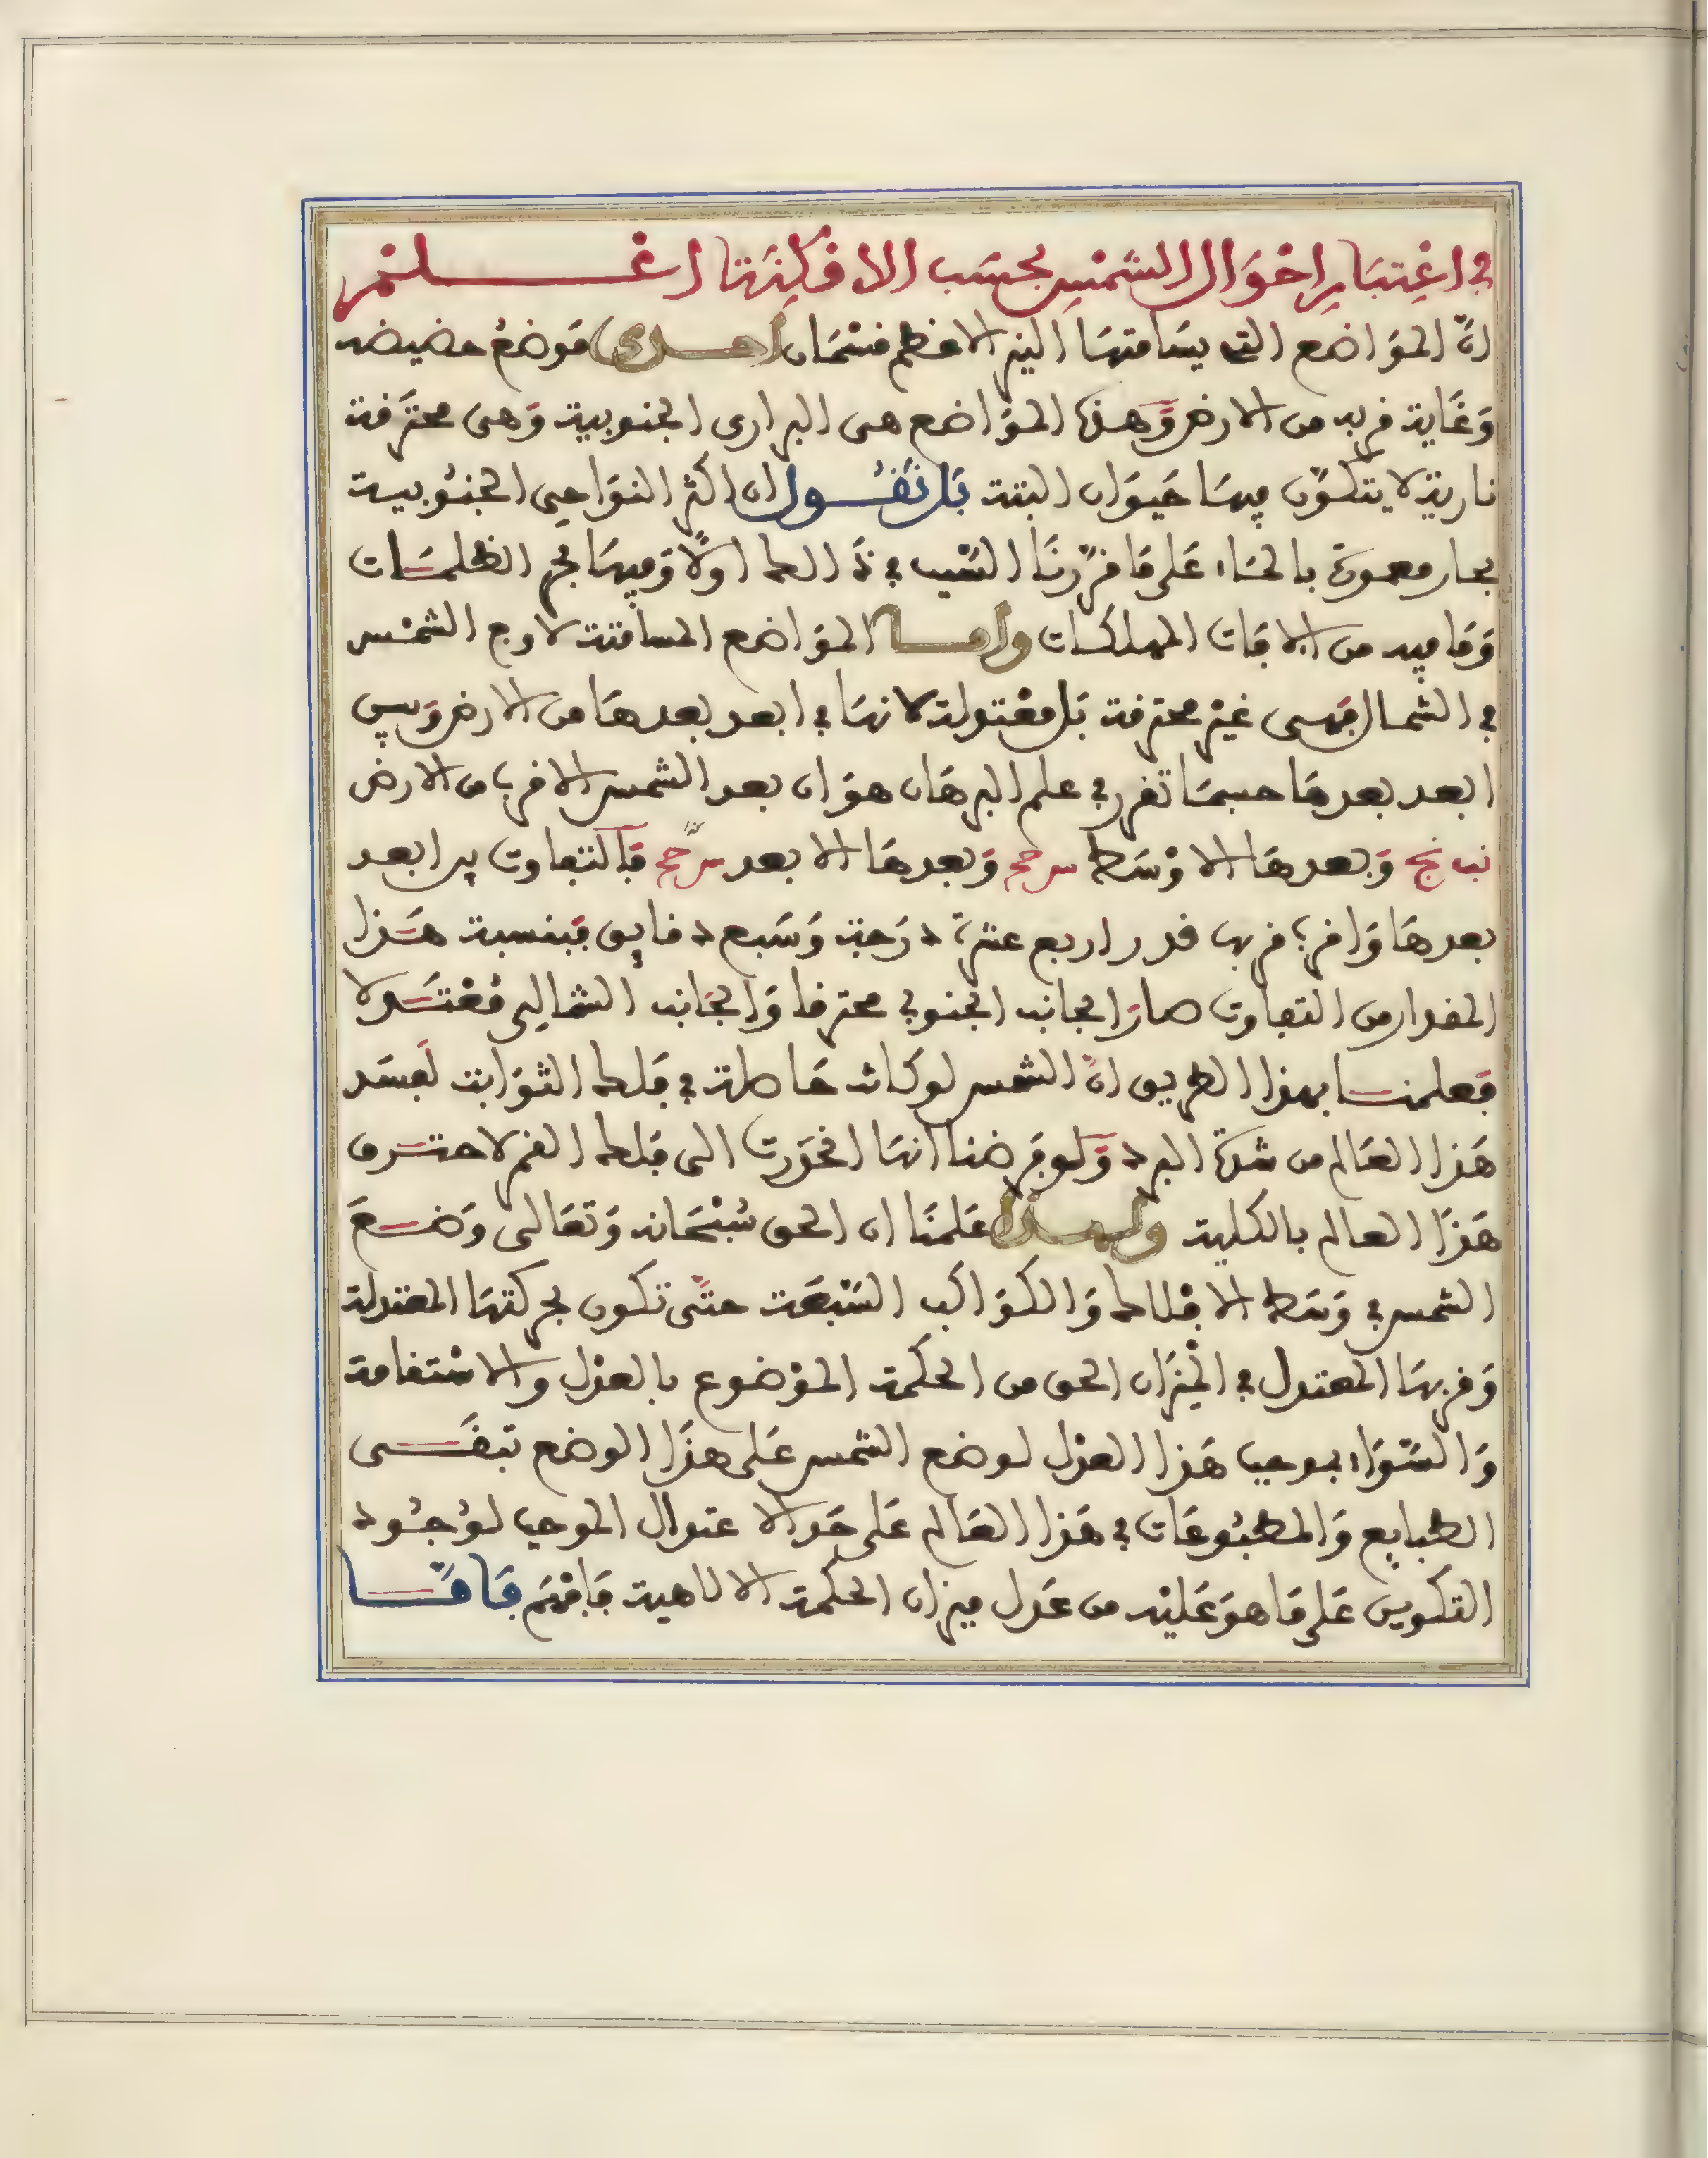 في اعتبار احوال الشمس بحسب الامكنة اعلم
ان المواضع التي يسامتها النير الاعظم قسمان احدى موضع حضيضه
وغاية قربه من الارض وهذه المواضع هى البرارى الجنوبية وهى محترقة
نارية لا يتكون فيها حيوان البتة بل نقول ان اكثر النواحي الجنوبية
بحار معمورة بالماء على ما قررنا السبب في ذالك اولا وفيها بحر الظلمات
وما فيه من الافات المهلكات واما المواضع المسامتة لاوج الشمس
في الشمال فهى غير محترقة بل معتدلة لانها في ابعد بعدها من الارض وبين
ابعد بعدها حسبما تقرر في علم البرهان هو ان بعد الشمس الاقرب من الارض
نب نج وبعدها الاوسط سرحم وبعدها الابعد سرحج فالتفاوت بين ابعد
بعدها واقرب قربها قدر اربع عشرة درجة وسبع دقايق فبنسبة هذا
المقدار من التفاوت صار الجانب الجنوبي محترقا والجانب الشمالي معتدلا
فعلمنا بهذا الطريق ان الشمس لو كانت حاصلة في فلك الثوابت لفسد
هذا العالم من شدة البرد ولو فرضنا انها انحدرت الى فلك القمر لاحترق
هذا العالم بالكلية ولهذا علمنا ان الحق سبحانه وتعالى وضع
الشمس في وسط الافلاك والكواكب السبعة حتى تكون بحركتها المعتدلة
وقربها المعتدل في الميزان الحق من الحكمة الموضوع بالعدل والاستقامة
والسواء بوجب هذا العدل لوضع الشمس على هذا الوضع تبقى
الطبايع والمطبوعات في هذا العالم على حد الاعتدال الموجب لوجود
التكوين على ما هو عليه من عدل ميزان الحكمة الالاهية فافهم فاما